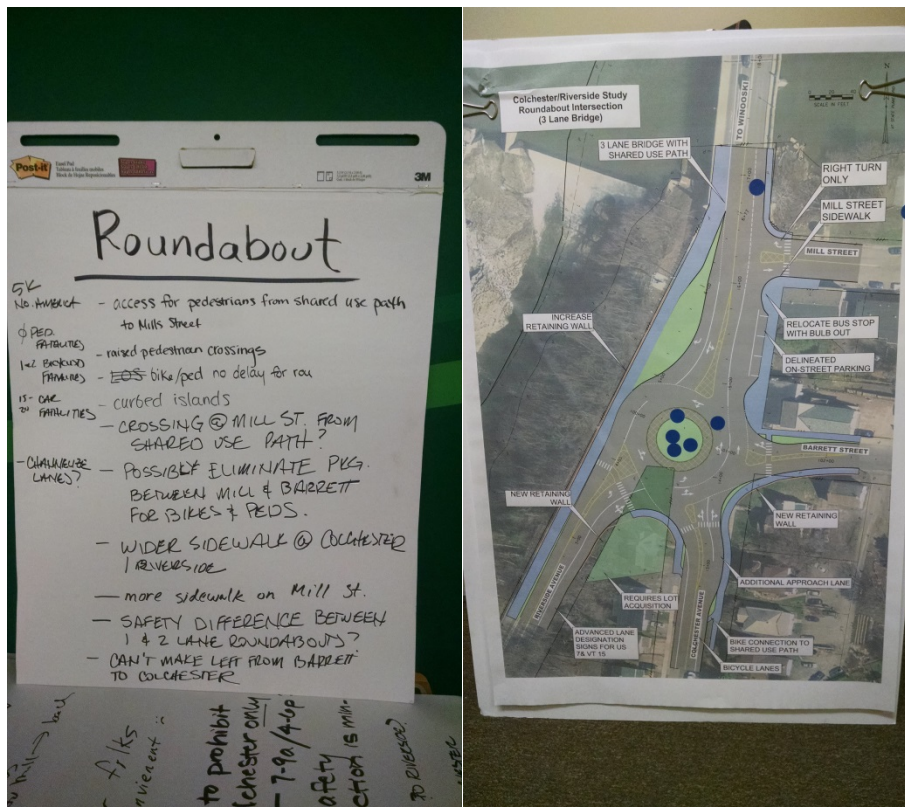 Post-it
3M
Roundabout
5K
NO. AMERICA
Ø PED.
FATALITIES
1-2 BICYCLIST
FATALITIES
15-20 CAR
FATALITIES
- CHANNELIZE
LANES?
- access for pedestrians from shared use path
to Mills Street
- raised pedestrian crossings
- bike/ped no delay for rou
- curbed islands
- CROSSING @ MILL ST. FROM
SHARED USE PATH?
- POSSIBLY ELIMINATE PKG.
BETWEEN MILL & BARRETT
FOR BIKES & PEDS.
- WIDER SIDEWALK @ COLCHESTER
/ RIVERSIDE
- more sidewalk on Mill St.
- SAFETY DIFFERENCE BETWEEN
1 & 2 LANE ROUNDABOUTS?
- CAN'T MAKE LEFT FROM BARRETT
TO COLCHESTER
to prohibit
lchester only
- 7-9a/4-6p
afety
ction is min-
folks
nvienent :(
TO RIVERSIDE?
Colchester/Riverside Study
Roundabout Intersection
(3 Lane Bridge)
SCALE IN FEET
TO WINOOSKI
3 LANE BRIDGE WITH
SHARED USE PATH
RIGHT TURN
ONLY
MILL STREET
SIDEWALK
MILL STREET
INCREASE
RETAINING WALL
RELOCATE BUS STOP
WITH BULB OUT
DELINEATED
ON-STREET PARKING
BARRETT STREET
NEW RETAINING
WALL
NEW RETAINING
WALL
RIVERSIDE AVENUE
REQUIRES LOT
ACQUISITION
ADDITIONAL APPROACH LANE
ADVANCED LANE
DESIGNATION
SIGNS FOR US
7& VT 15
COLCHESTER AVENUE
BIKE CONNECTION TO
SHARED USE PATH
BICYCLE LANES